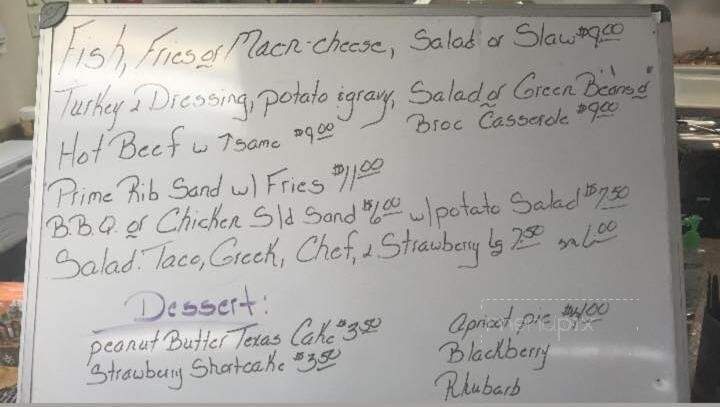 Fish, Fries or Macn-cheese, Salad or Slaw $9.00
Turkey & Dressing, potato & gravy, Salad or Green Beans or
Broc Casserole $9.00
Hot Beef w ↑ same $9.00
Prime Rib Sand w/ Fries $11.00
B.B.Q. or Chicken Sld Sand $6.00 w/ potato Salad $7.50
Salad: Taco, Greek, Chef, & Strawberry lg 7.50 sm 6.00
Dessert:
peanut Butter Texas Cake $3.50
Strawberry Shortcake $3.50
Apricot pie $4.00
Blackberry
Rhubarb
menupix